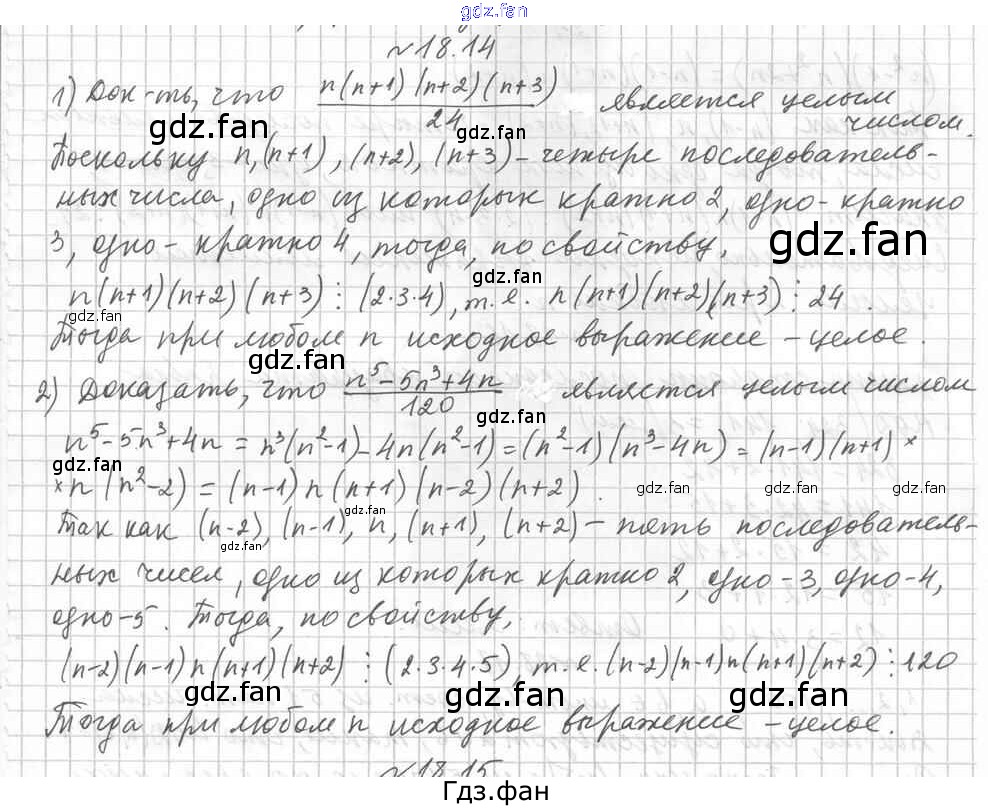 gdz.fan
№18.14
1) Док-ть, что n(n+1)(n+2)(n+3)/24 является целым
числом.
gdz.fan gdz.fan
Поскольку n, (n+1), (n+2), (n+3) – четыре последователь-
ных числа, одно из которых кратно 2, одно - кратно
3, одно - кратно 4, тогда, по свойству,
gdz.fan
gdz.fan
n(n+1)(n+2)(n+3) ⋮ (2·3·4), т.е. n(n+1)(n+2)(n+3) ⋮ 24.
gdz.fan
Тогда при любом n исходное выражение – целое.
gdz.fan
2) Доказать, что n⁵-5n³+4n/120 является целым числом
gdz.fan
n⁵-5n³+4n = n³(n²-1)-4n(n²-1) = (n²-1)(n³-4n) = (n-1)(n+1)×
gdz.fan
×n(n²-2) = (n-1)n(n+1)(n-2)(n+2).
gdz.fan gdz.fan gdz.fan
gdz.fan
Так как (n-2), (n-1), n, (n+1), (n+2) – пять последователь-
gdz.fan
ных чисел, одно из которых кратно 2, одно -3, одно -4,
одно -5. Тогда, по свойству,
(n-2)(n-1)n(n+1)(n+2) ⋮ (2·3·4·5), т.е. (n-2)(n-1)n(n+1)(n+2) ⋮ 120
gdz.fan gdz.fan gdz.fan
Тогда при любом n исходное выражение – целое.
№18.15
Гдз.фан